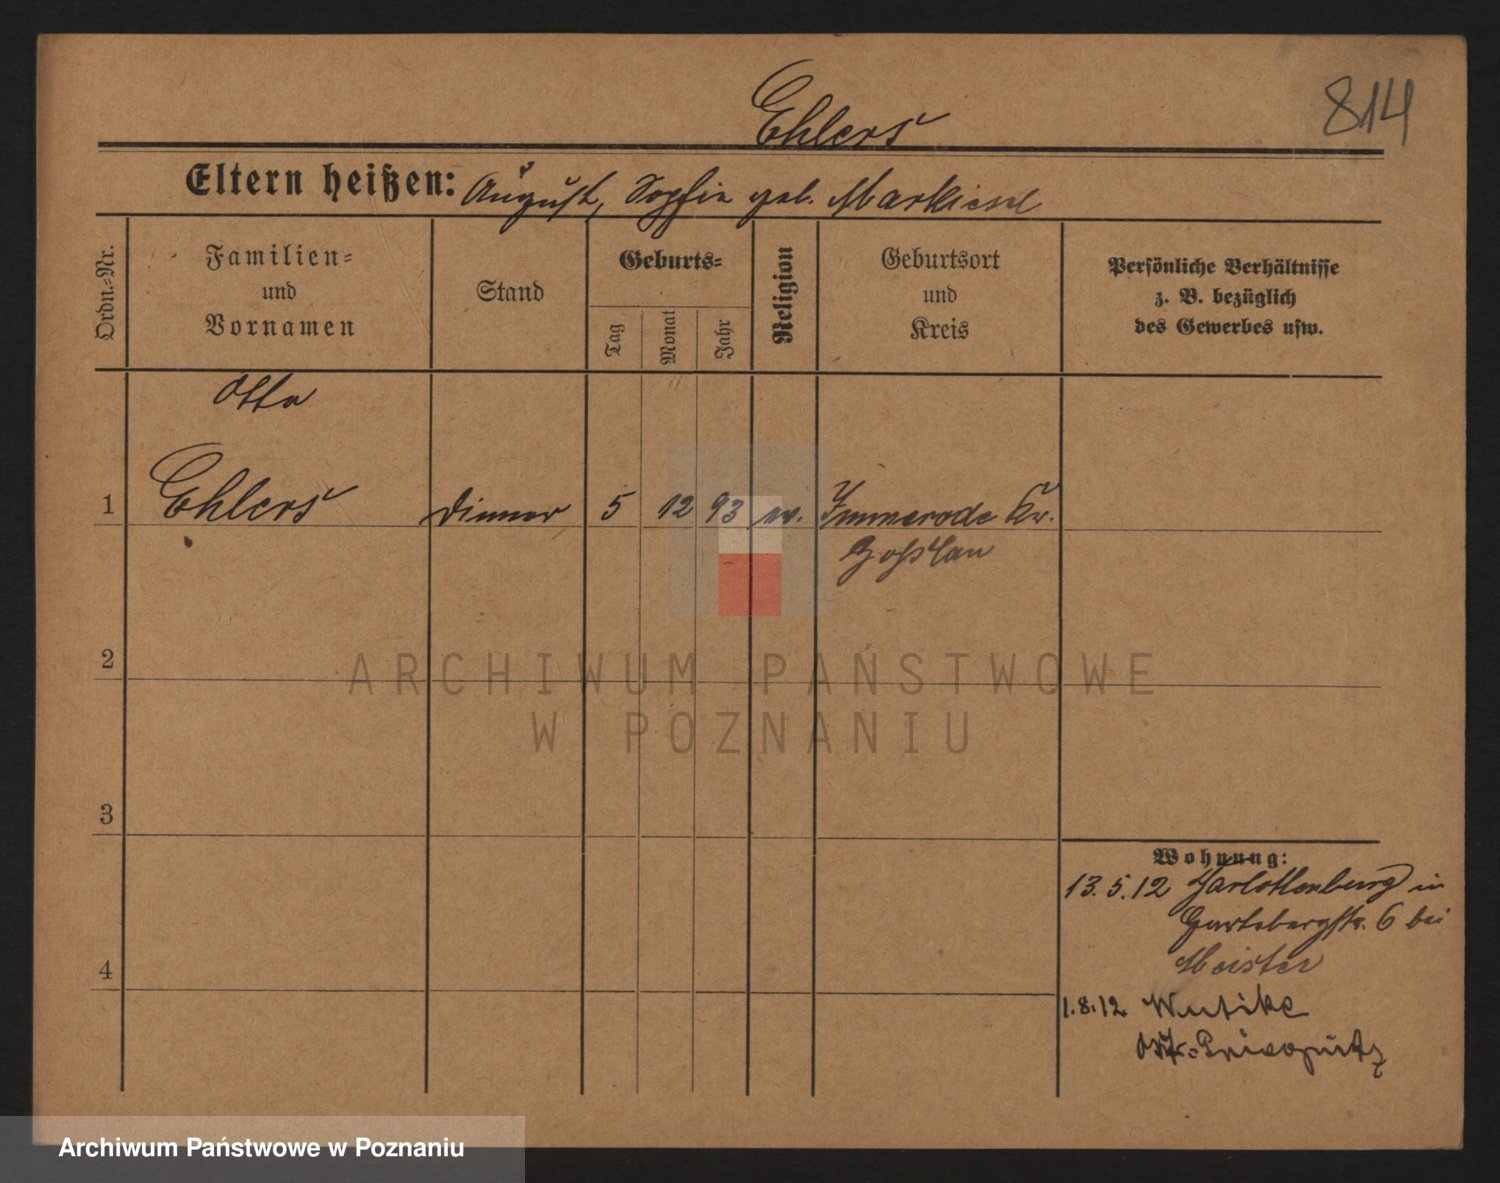 814
Ehlers
Eltern heißen: August, Sophie geb. Markiesel
Ordn.-Nr.
Familien-
und
Vornamen
Stand
Geburts-
Tag
Monat
Jahr
Religion
Geburtsort
und
Kreis
Persönliche Verhältnisse
z. B. bezüglich
des Gewerbes usw.
Otto
1 Ehlers Diener 5 12 93 ev. Immerode Kr.
Goßlau
2
ARCHIWUM PAŃSTWOWE
W POZNANIU
3
Wohnung:
13.5.12 in
6 bei
Meister
4
1.8.12 Wutike
Ost-Priegnitz
Archiwum Państwowe w Poznaniu